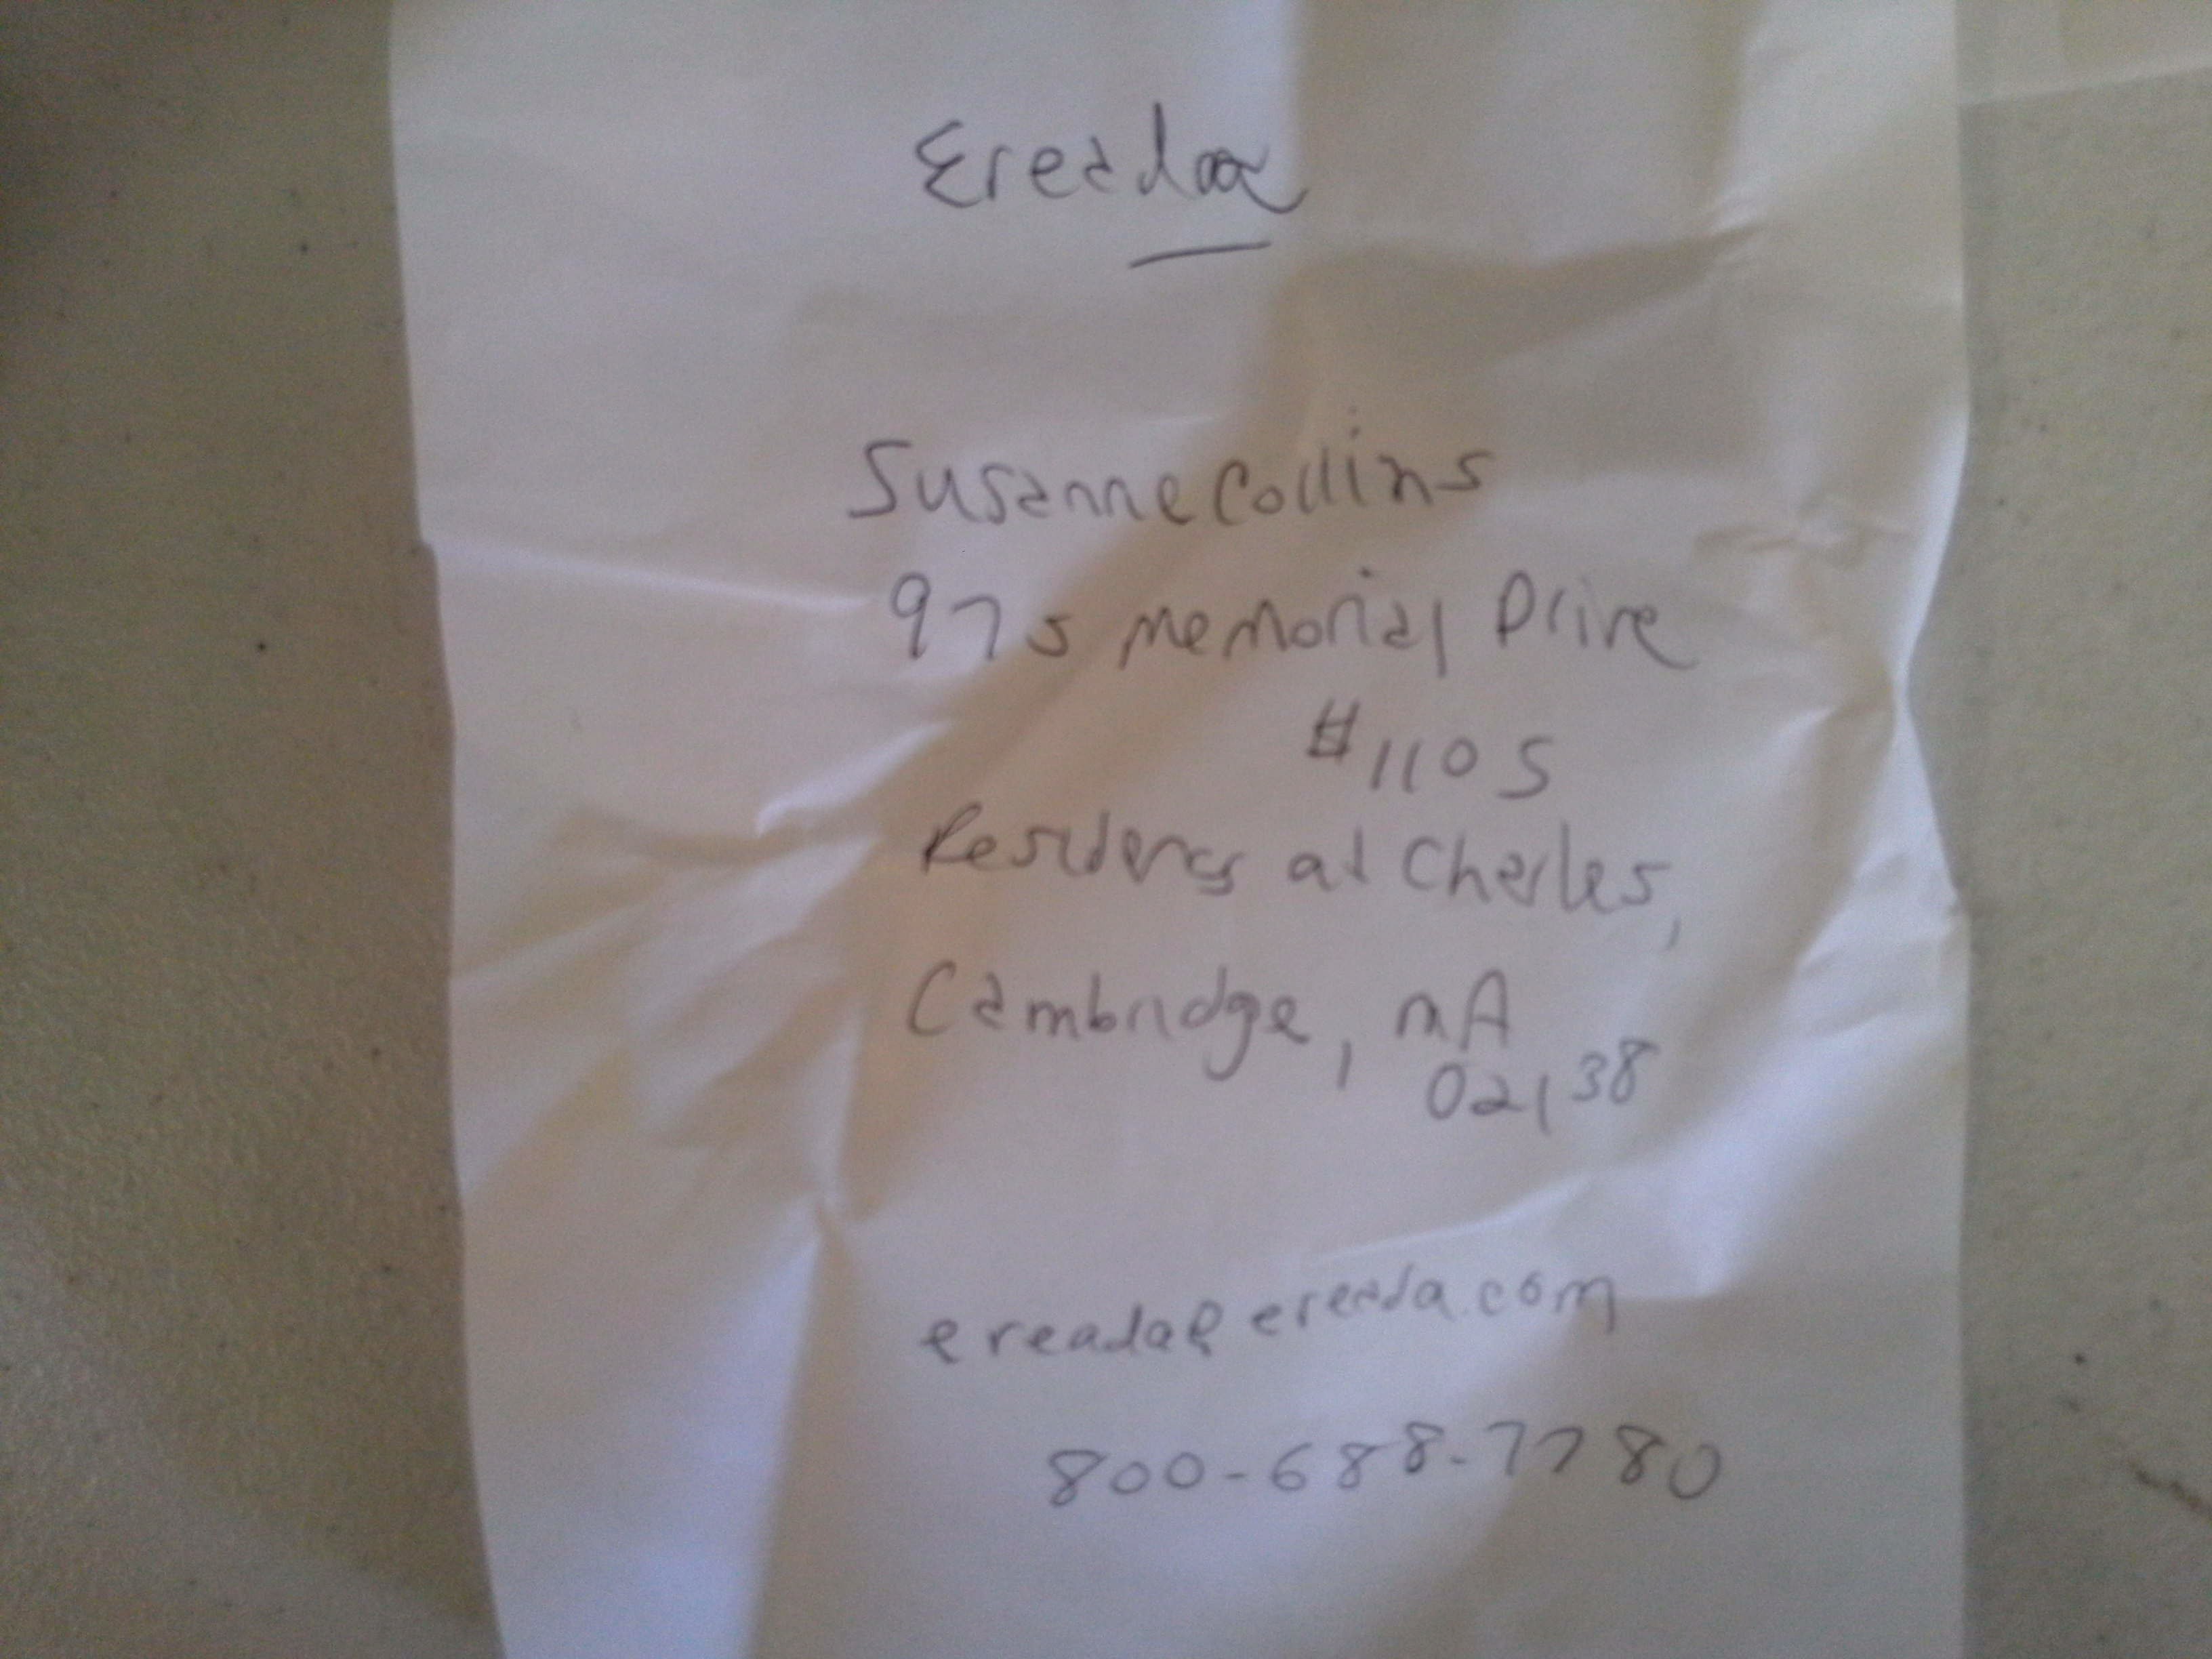 Ereada
Susanne Collins
975 Memorial Drive
#1105
Residency at Charles,
Cambridge, MA
02138
ereada@ereada.com
800-688-7780